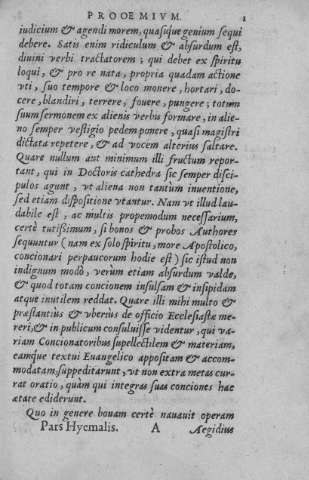 PROOEMIVM. 1
iudicium & agendi morem, quasique genium sequi
debere. Satis enim ridiculum & absurdum est,
diuini verbi tractatorem; qui debet ex spiritu
loqui, & pro re nata, propria quadam actione
vti, suo tempore & loco monere, hortari, do-
cere, blandiri, terrere, fouere, pungere; totum
suum sermonem ex alienis verbis formare, in alie-
no semper vestigio pedem ponere, quasi magistri
dictata repetere, & ad vocem alterius saltare.
Quare nullum aut minimum illi fructum repor-
tant, qui in Doctoris cathedra sic semper disci-
pulos agunt, vt aliena non tantùm inuentione,
sed etiam dispositione vtantur. Nam vt illud lau-
dabile est, ac multis propemodum necessarium,
certè tutissimum, si bonos & probos Authores
sequuntur (nam ex solo spiritu, more Apostolico,
concionari perpaucorum hodie est) sic istud non
indignum modò, verùm etiam absurdum valde,
& quod totam concionem insulsam & insipidam
atque inutilem reddat. Quare illi mihi multo &
præstantius & vberius de officio Ecclesiastæ me-
reri, & in publicum consuluisse videntur, qui va-
riam Concionatoribus supellectilem & materiam,
eamque textui Euangelico appositam & accom-
modatam, suppeditarunt, vt non extra metas cur-
rat oratio, quàm qui integras suas conciones hac
ætate ediderunt.
Quo in genere bonam certè nauauit operam
Pars Hyemalis. A Aegidius